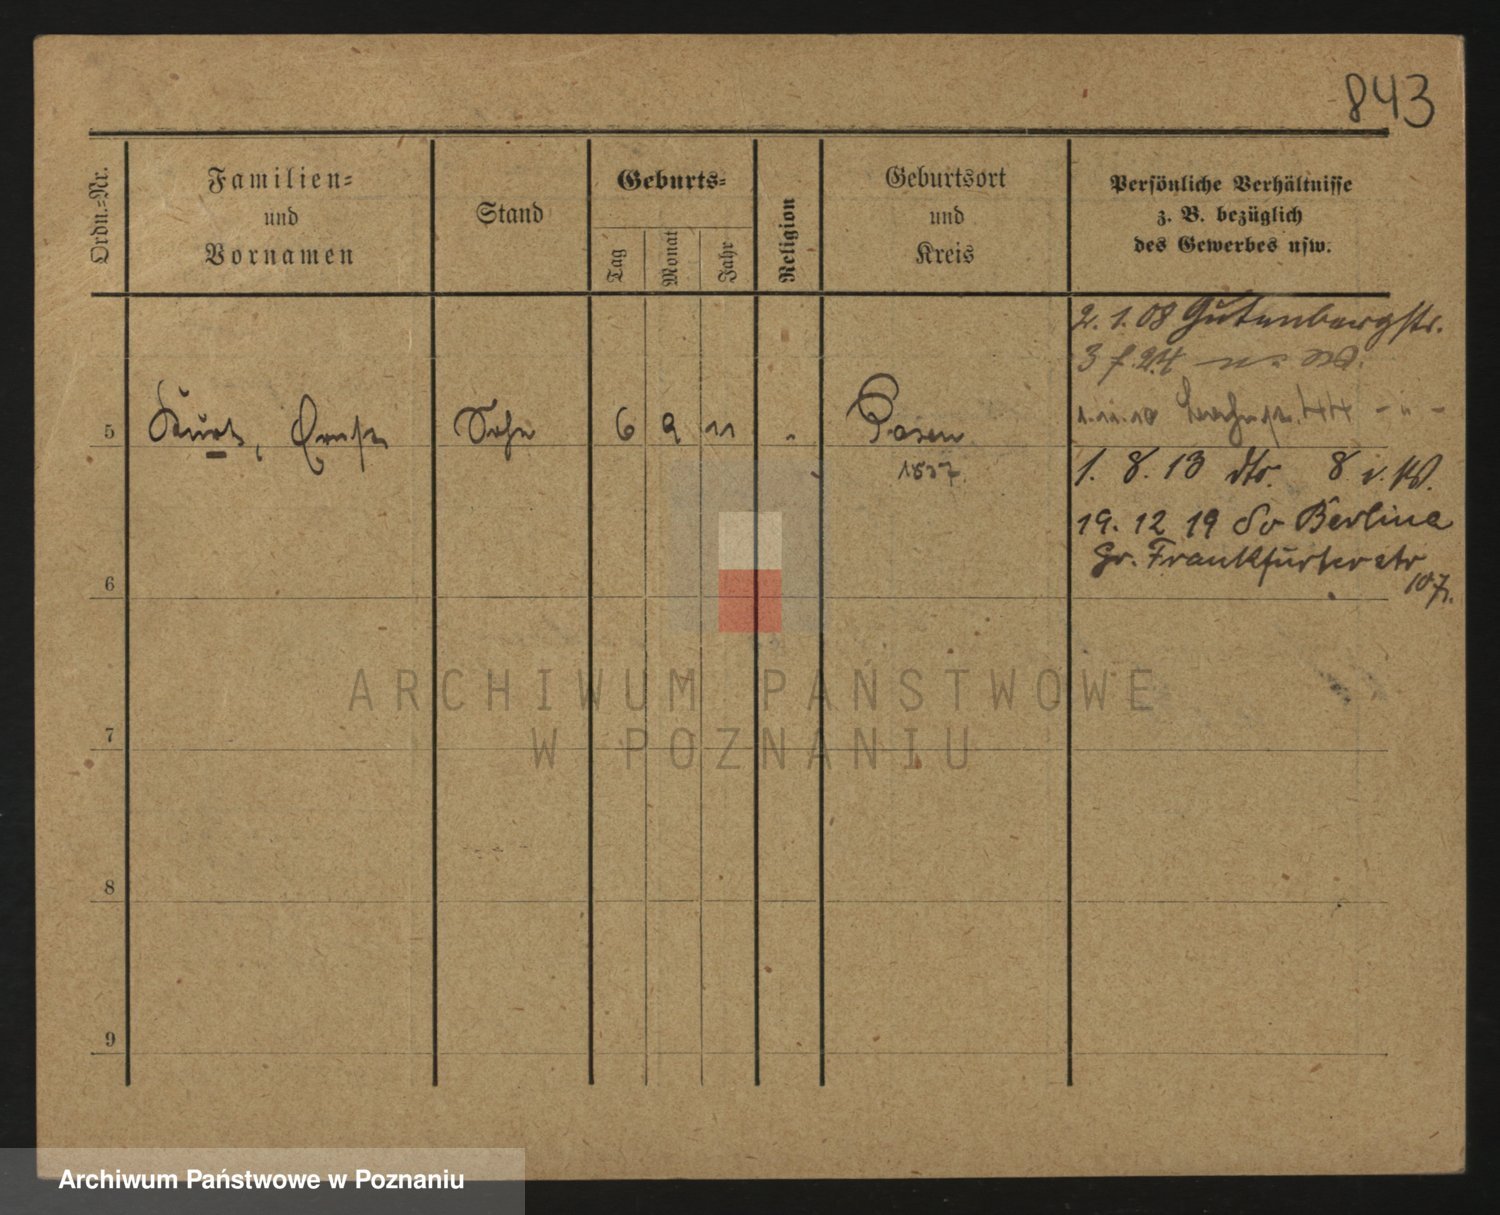 843
Ordn.-Nr.
Familien-
und
Vornamen
Stand
Geburts-
Tag
Monat
Jahr
Religion
Geburtsort
und
Kreis
Persönliche Verhältnisse
z. B. bezüglich
des Gewerbes usw.
2. 1. 08 Gutenbergstr.
3
5 Kurt, Ernst Sohn 6 9 11 " Posen
1. 8. 13 dto. 8 v. W.
19. 12 19 So Berlin
Gr. Frankfurterstr
107.
6
7
8
9
ARCHIWUM PAŃSTWOWE
W POZNANIU
Archiwum Państwowe w Poznaniu